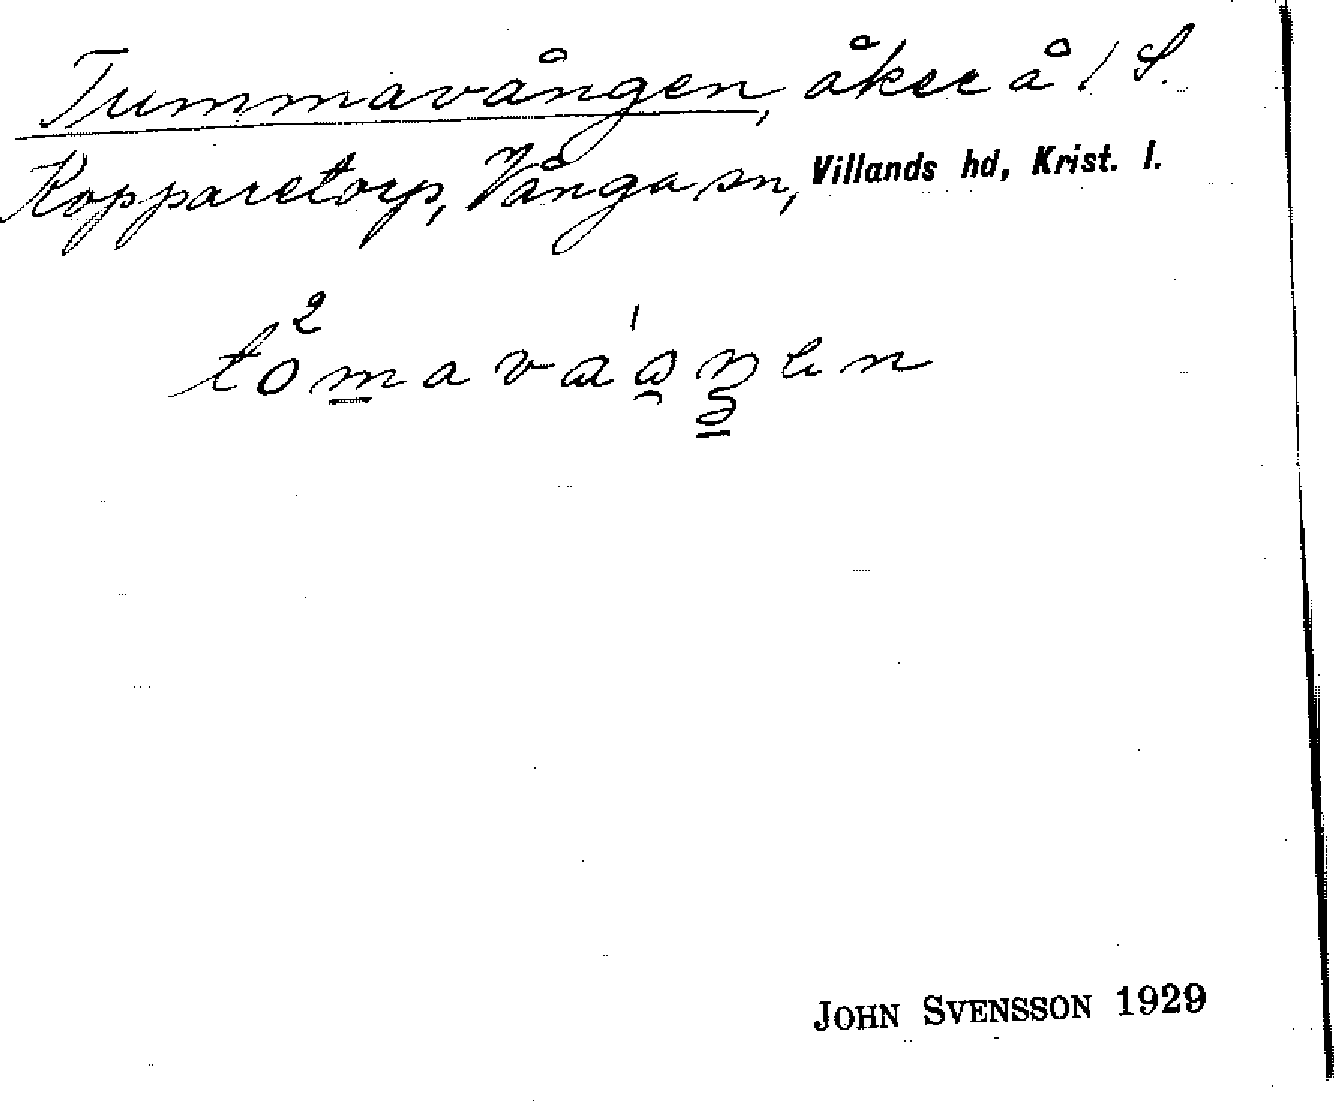 Tummavången, åker å 1 S.
Kopparetorp, Vånga sn, Villands hd, Krist. l.
tomavaaŋen
JOHN SVENSSON 1929